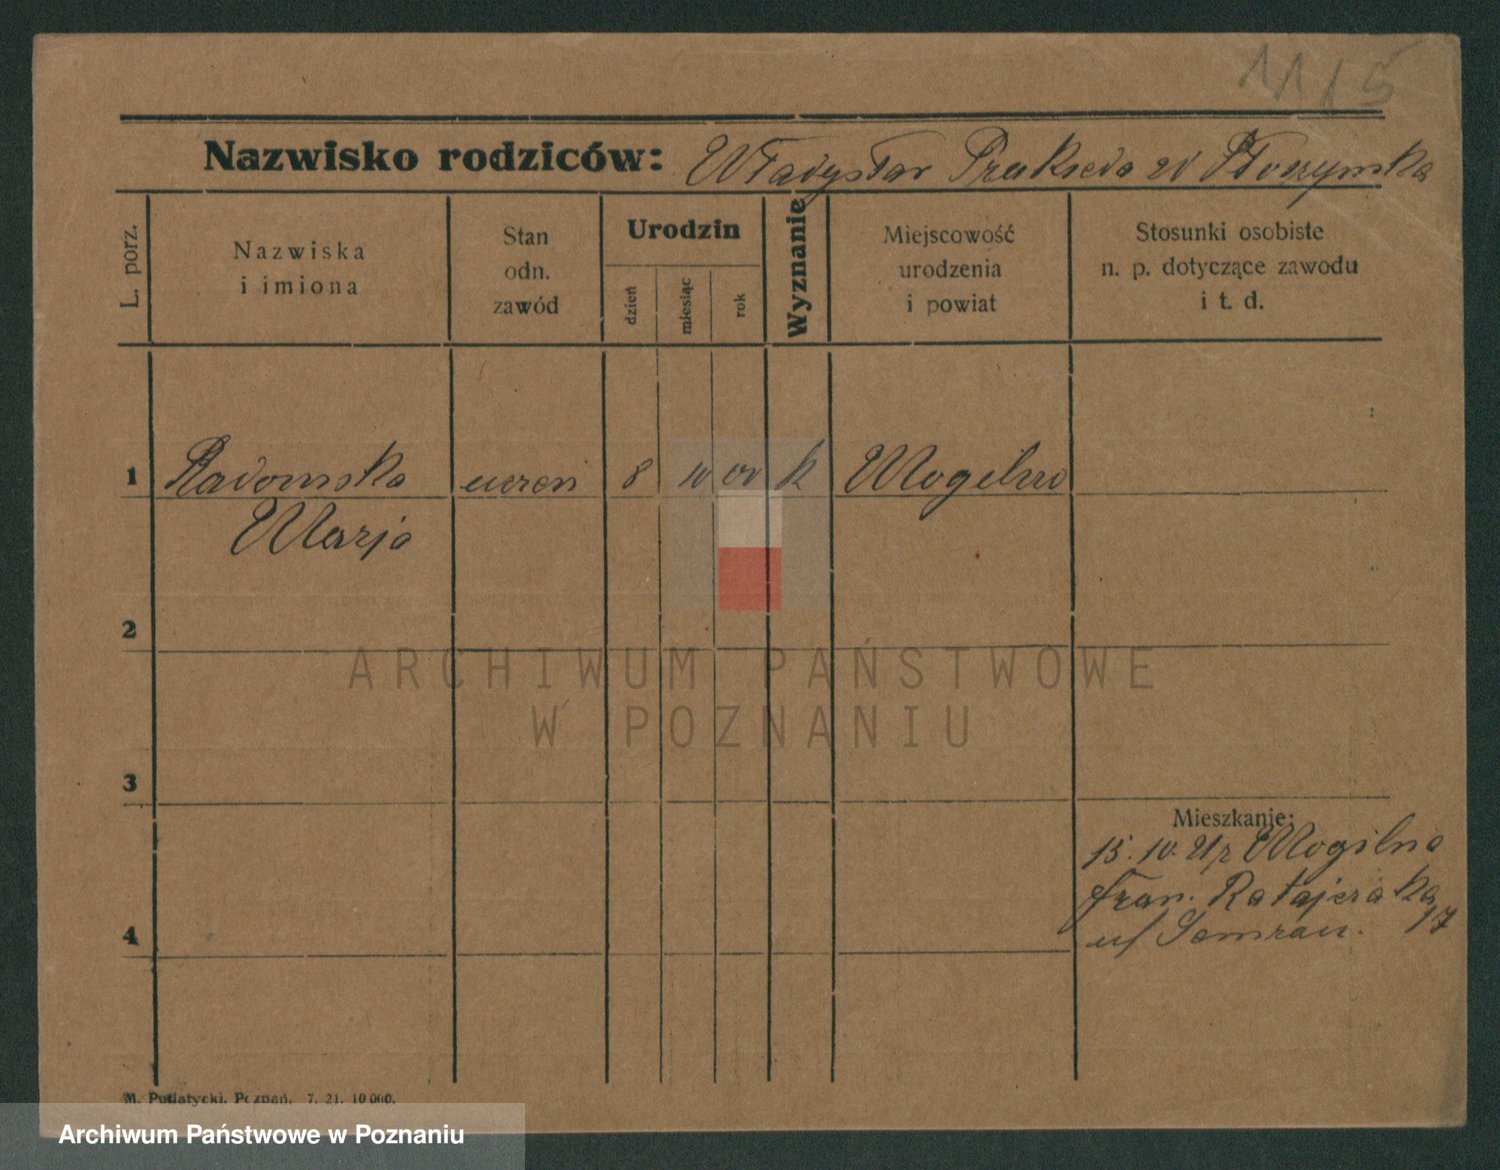 1115
Nazwisko rodziców: Władysław Prakseda zd
L. porz.
Nazwiska
i imiona
Stan
odn.
zawód
Urodzin
dzień
miesiąc
rok
Wyznanie
Miejscowość
urodzenia
i powiat
Stosunki osobiste
n. p. dotyczące zawodu
i t. d.
1 Radomska uczeń 8 10 00 k Mogilno
Marja
2
3
4
Mieszkanie:
15. 10. 21 z Mogilna
Fran. Ratajczaka 17
u/
M. Putiatycki, Poznań. 7. 21. 10 000.
ARCHIWUM PAŃSTWOWE
W POZNANIU
Archiwum Państwowe w Poznaniu